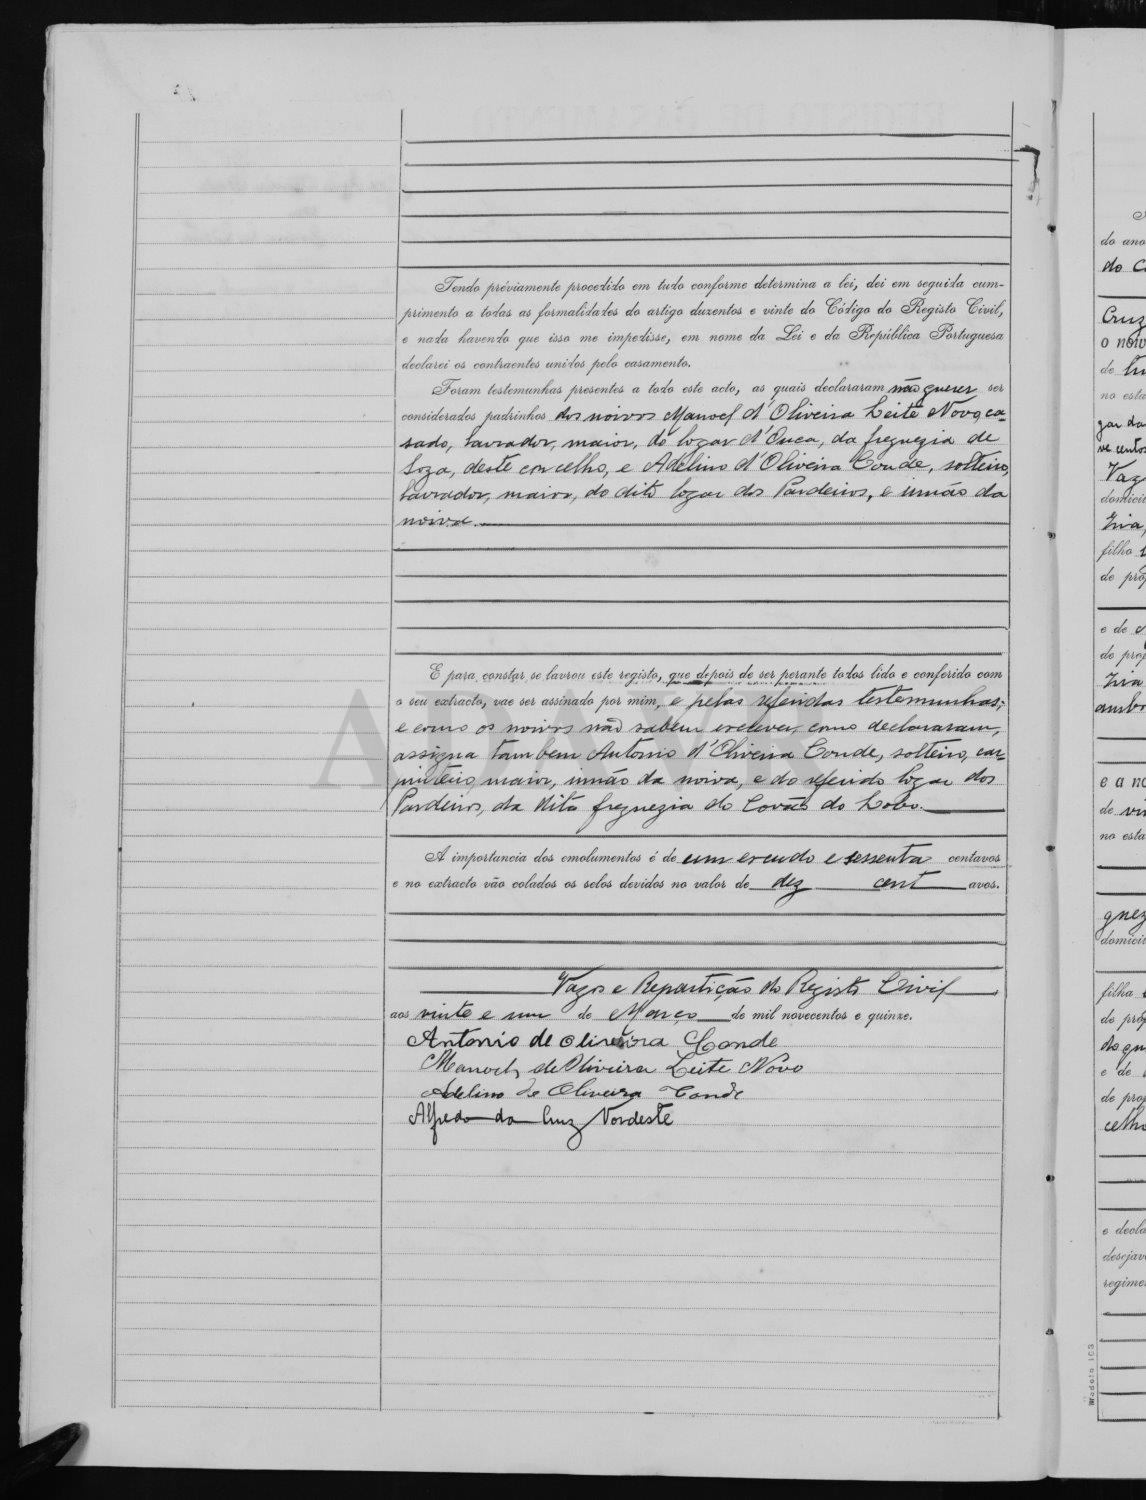 Tendo préviamente procedido em tudo conforme determina a lei, dei em seguida cum-
primento a todas as formalidades do artigo duzentos e vinte do Código do Registo Civil,
e nada havendo que isso me impedisse, em nome da Lei e da República Portuguesa
declarei os contraentes unidos pelo casamento.
Foram testemunhas presentes a todo este acto, as quais declararam não querer ser
considerados padrinhos dos noivos Manoel d'Oliveira Leite Novo, ca-
sado, lavrador, maior, do logar d'Ouca, da freguezia de
Soza, deste concelho, e Adelino d'Oliveira Conde, solteiro,
lavrador, maior, do dito logar dos Pardeiros, e irmão da
noiva.
E para constar se lavrou este registo, que depois de ser perante todos lido e conferido com
o seu extracto, vae ser assinado por mim, e pelas referidas testemunhas;
e como os noivos não sabem escrever, como declararam,
assigna tambem Antonio d'Oliveira Conde, solteiro, car-
pinteiro, maior, irmão da noiva, e do referido logar dos
Pardeiros, da dita freguezia de Covão do Lobo.
A importancia dos emolumentos é de um escudo e sessenta centavos
e no extracto vão colados os selos devidos no valor de dez cent avos.
Vagos e Repartição do Registo Civil
aos vinte e um de Março de mil novecentos e quinze.
Antonio de Oliveira Conde
Manoel de Oliveira Leite Novo
Adelino de Oliveira Conde
Alfredo da Cruz Nordeste
do ano
do C
Cruz
o noiv
de
no esta
gar da
ve centos
Vag
domicil
filho
de prop
e de
de prop
e a no
de vi
no esta
guez
domici
filha
de pro
e de
de prop
celho
e decla
desejav
regime
Modelo ICS